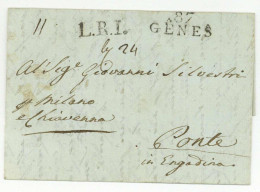 11 L.R.I. 87
GÊNES
24
Al Sig.r Giovanni Silvestri
p Milano
e Chiavenna
Ponte
in Engadina